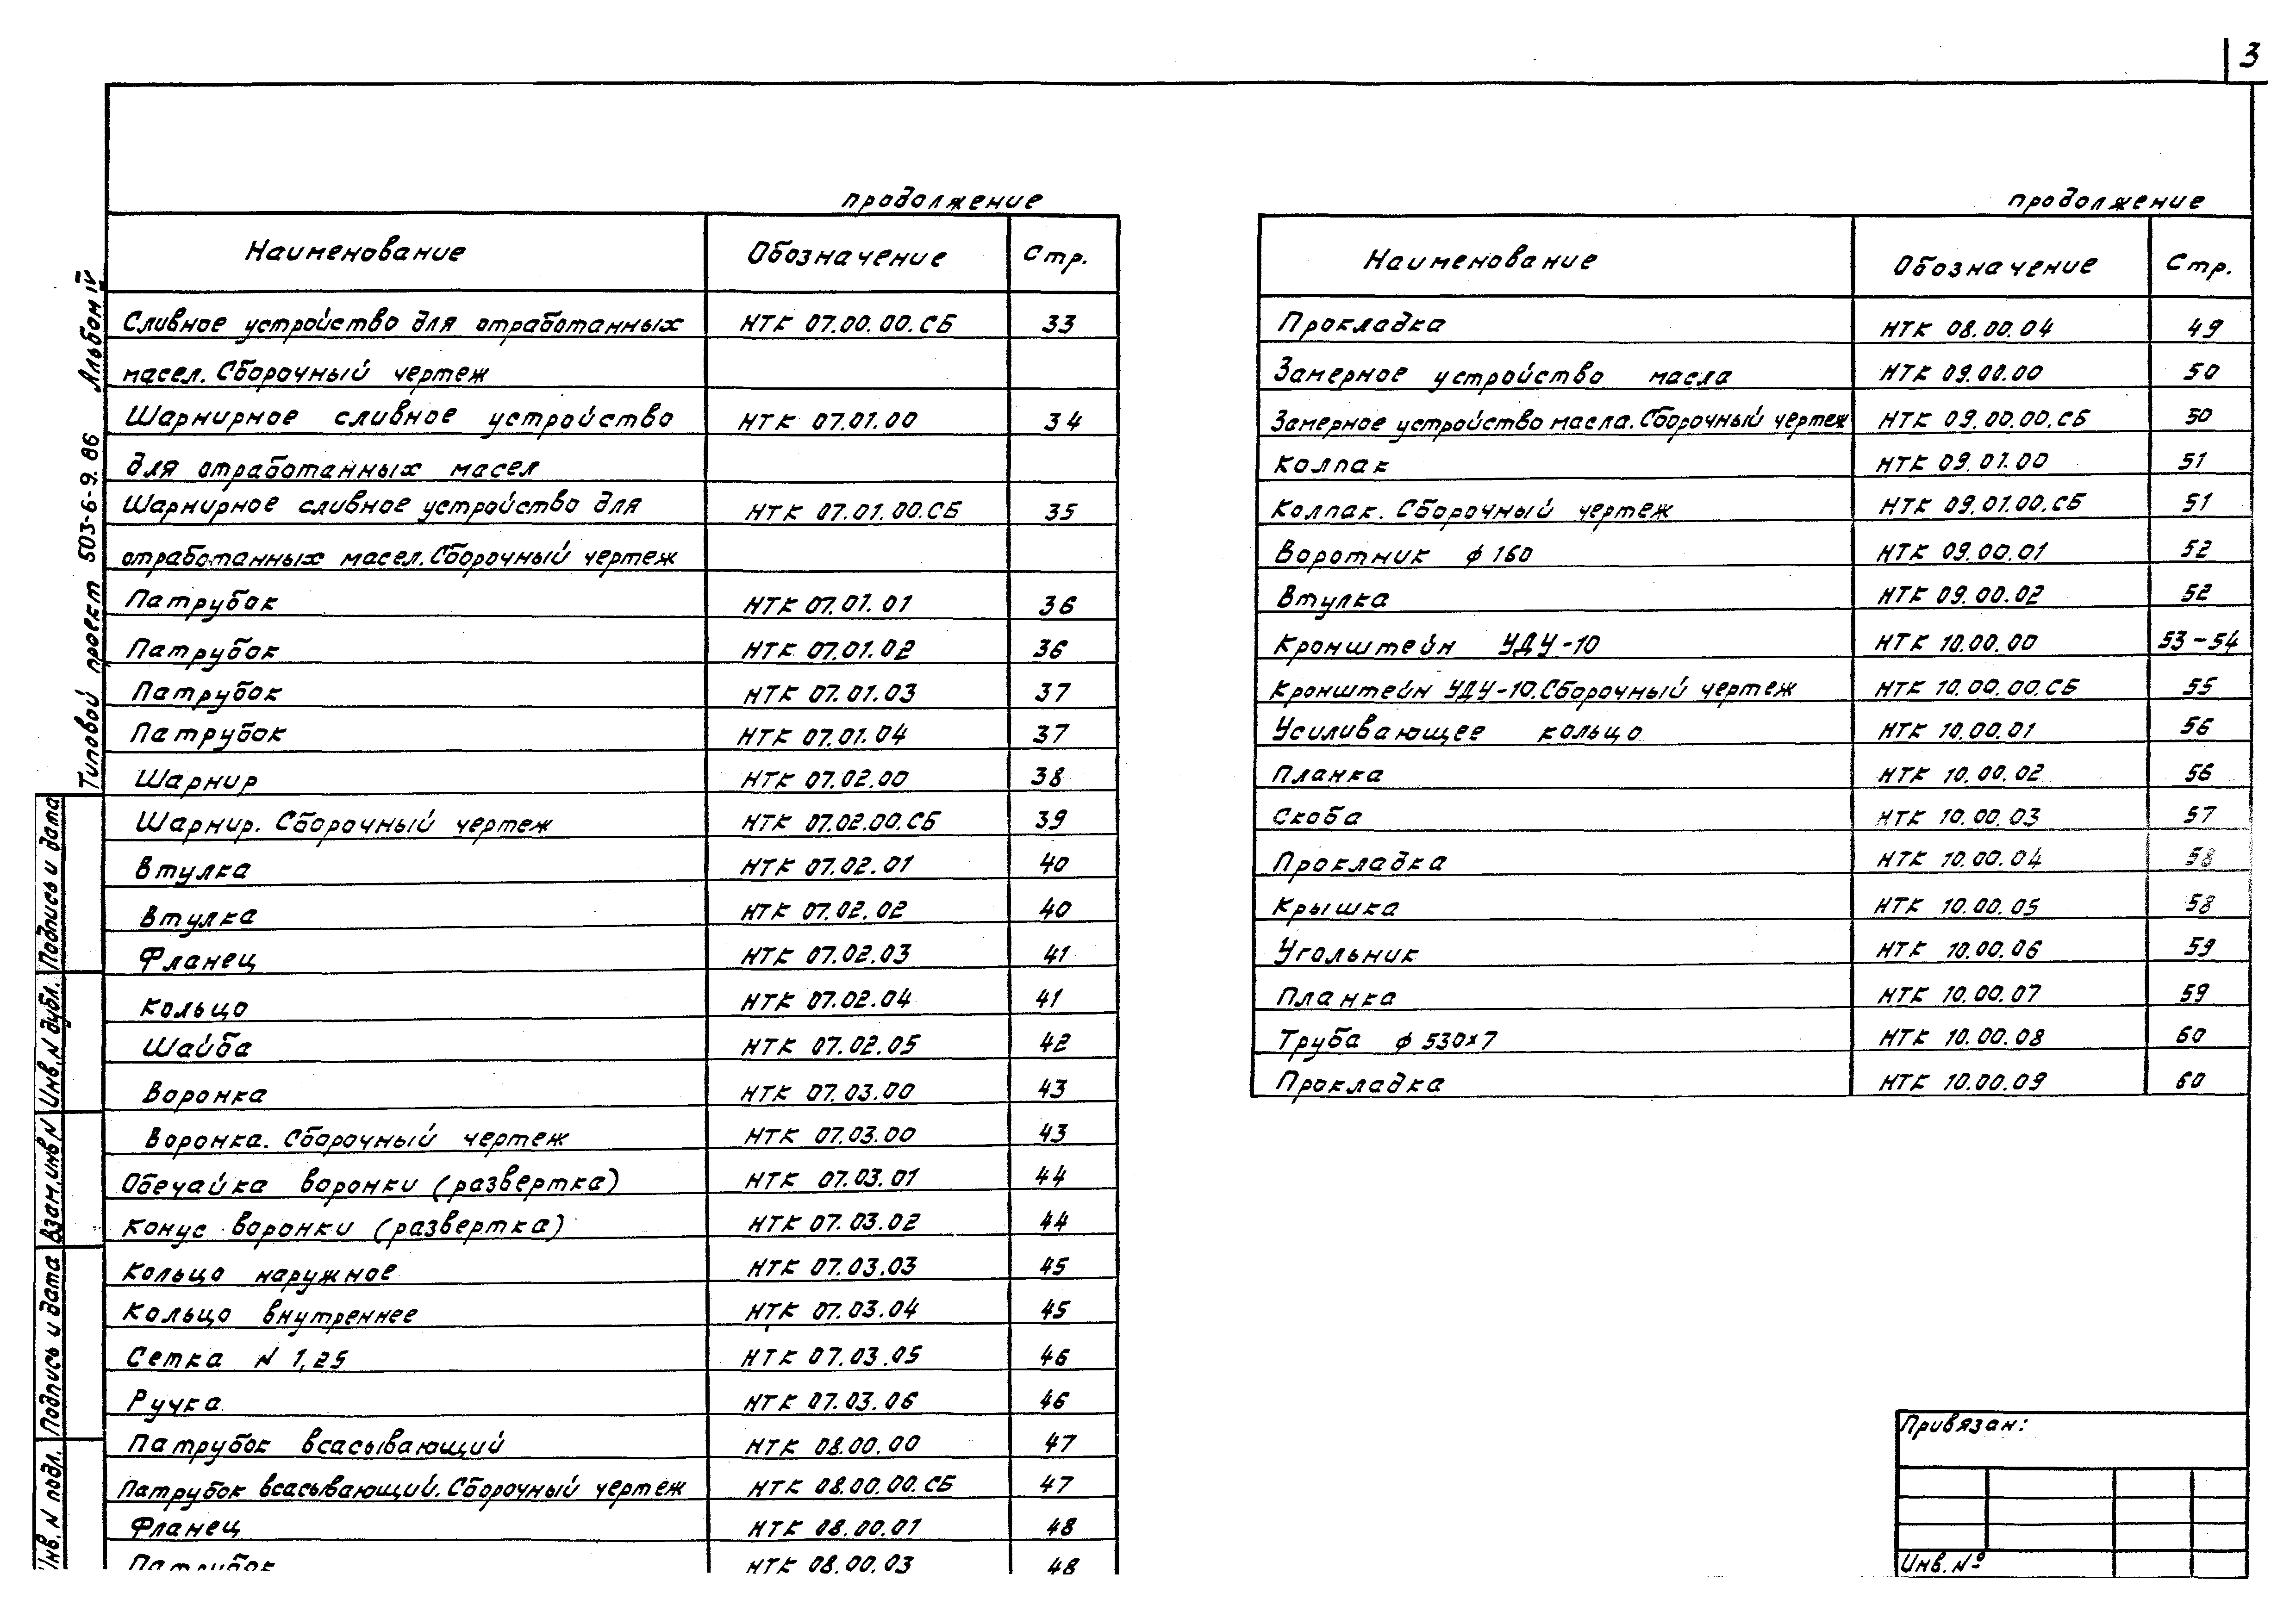 3
Типовой проект 503-6-9.86 Альбом IV
продолжение
Наименование Обозначение Стр.
Сливное устройство для отработанных НТК 07.00.00.СБ 33
масел. Сборочный чертеж
Шарнирное сливное устройство НТК 07.01.00 34
для отработанных масел
Шарнирное сливное устройство для НТК 07.01.00.СБ 35
отработанных масел. Сборочный чертеж
Патрубок НТК 07.01.01 36
Патрубок НТК 07.01.02 36
Патрубок НТК 07.01.03 37
Патрубок НТК 07.01.04 37
Шарнир НТК 07.02.00 38
Шарнир. Сборочный чертеж НТК 07.02.00.СБ 39
Втулка НТК 07.02.01 40
Втулка НТК 07.02.02 40
Фланец НТК 07.02.03 41
Кольцо НТК 07.02.04 41
Шайба НТК 07.02.05 42
Воронка НТК 07.03.00 43
Воронка. Сборочный чертеж НТК 07.03.00 43
Обечайка воронки (развертка) НТК 07.03.01 44
Конус воронки (развертка) НТК 07.03.02 44
Кольцо наружное НТК 07.03.03 45
Кольцо внутреннее НТК 07.03.04 45
Сетка N 1,25 НТК 07.03.05 46
Ручка НТК 07.03.06 46
Патрубок всасывающий НТК 08.00.00 47
Патрубок всасывающий. Сборочный чертеж НТК 08.00.00.СБ 47
Фланец НТК 08.00.01 48
Патрубок НТК 08.00.03 48
продолжение
Наименование Обозначение Стр.
Прокладка НТК 08.00.04 49
Замерное устройство масла НТК 09.00.00 50
Замерное устройство масла. Сборочный чертеж НТК 09.00.00.СБ 50
Колпак НТК 09.01.00 51
Колпак. Сборочный чертеж НТК 09.01.00.СБ 51
Воротник ф 160 НТК 09.00.01 52
Втулка НТК 09.00.02 52
Кронштейн УДУ-10 НТК 10.00.00 53-54
Кронштейн УДУ-10. Сборочный чертеж НТК 10.00.00.СБ 55
Усиливающее кольцо НТК 10.00.01 56
Планка НТК 10.00.02 56
Скоба НТК 10.00.03 57
Прокладка НТК 10.00.04 58
Крышка НТК 10.00.05 58
Угольник НТК 10.00.06 59
Планка НТК 10.00.07 59
Труба ф 530×7 НТК 10.00.08 60
Прокладка НТК 10.00.09 60
Подпись и дата
Инв. N дубл.
Взам. инв N
Подпись и дата
Инв. N подл.
Привязан:
Инв. №